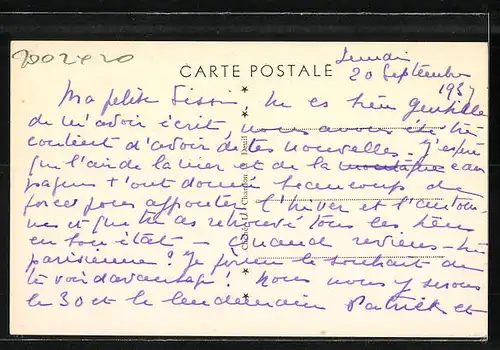 2002420
Lundi
20 Septembre
1937
CARTE POSTALE
Ma petite Sissi, tu es bien gentille
de m'avoir écrit, nous avons été très
contents d'avoir de tes nouvelles. J'espère
que l'air de la mer et de la montagne
t'ont donné beaucoup de
forces pour affronter l'hiver et l'autom-
ne et que tu as retrouvé tous les tiens
en bon état - Quand reviens-tu
parisienne? Je forme le souhait de
te voir davantage! Nous nous y serons
le 30 et le lendemain Patrick et